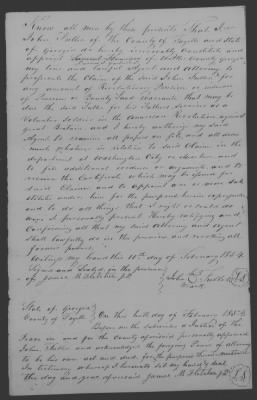 Know all men by these presents That I
John Sutler of The County of Fayette and State
of Georgia do hereby constitute and
appoint
my true and lawful agent and attorney to
prosecute the Claim of the said John Sutler for
any amount of Revolutionary Pension or increase
of Pension or Bounty Land Warrant that may be
due the said Sutler for his Services as a
Volunteer Soldier in the American Revolution against
great Britain and I hereby authorize my said
Agent to examine all papers on file and all docu
ments in relation to said Claim in the
department at Washington City or elsewhere and
to file additional evidence or arguments and to
receive the Certificate which may be issued for
said Claim and to appoint one or more sub
stitute under him for the purposes herein expressed
and to do all things that I might or could do
were I personally present Hereby ratifying and
Confirming all that my said Attorney and agent
shall lawfully do in the premises and revoking all
former powers
Witness my hand this 10th day of February 1854
Signed and Sealed in the presence
of James M
John Sutler
mark
State of Georgia
County of Fayette
On this day of February 1854
Before me the subscriber a Justice of the
Peace in and for the County aforesaid personally appeared
John Sutler and acknowledged the foregoing Power of attorney
to be his own act and deed for the purposes therein mentioned
In testimony whereof I hereunto set my hand &
the day and year aforesaid James M